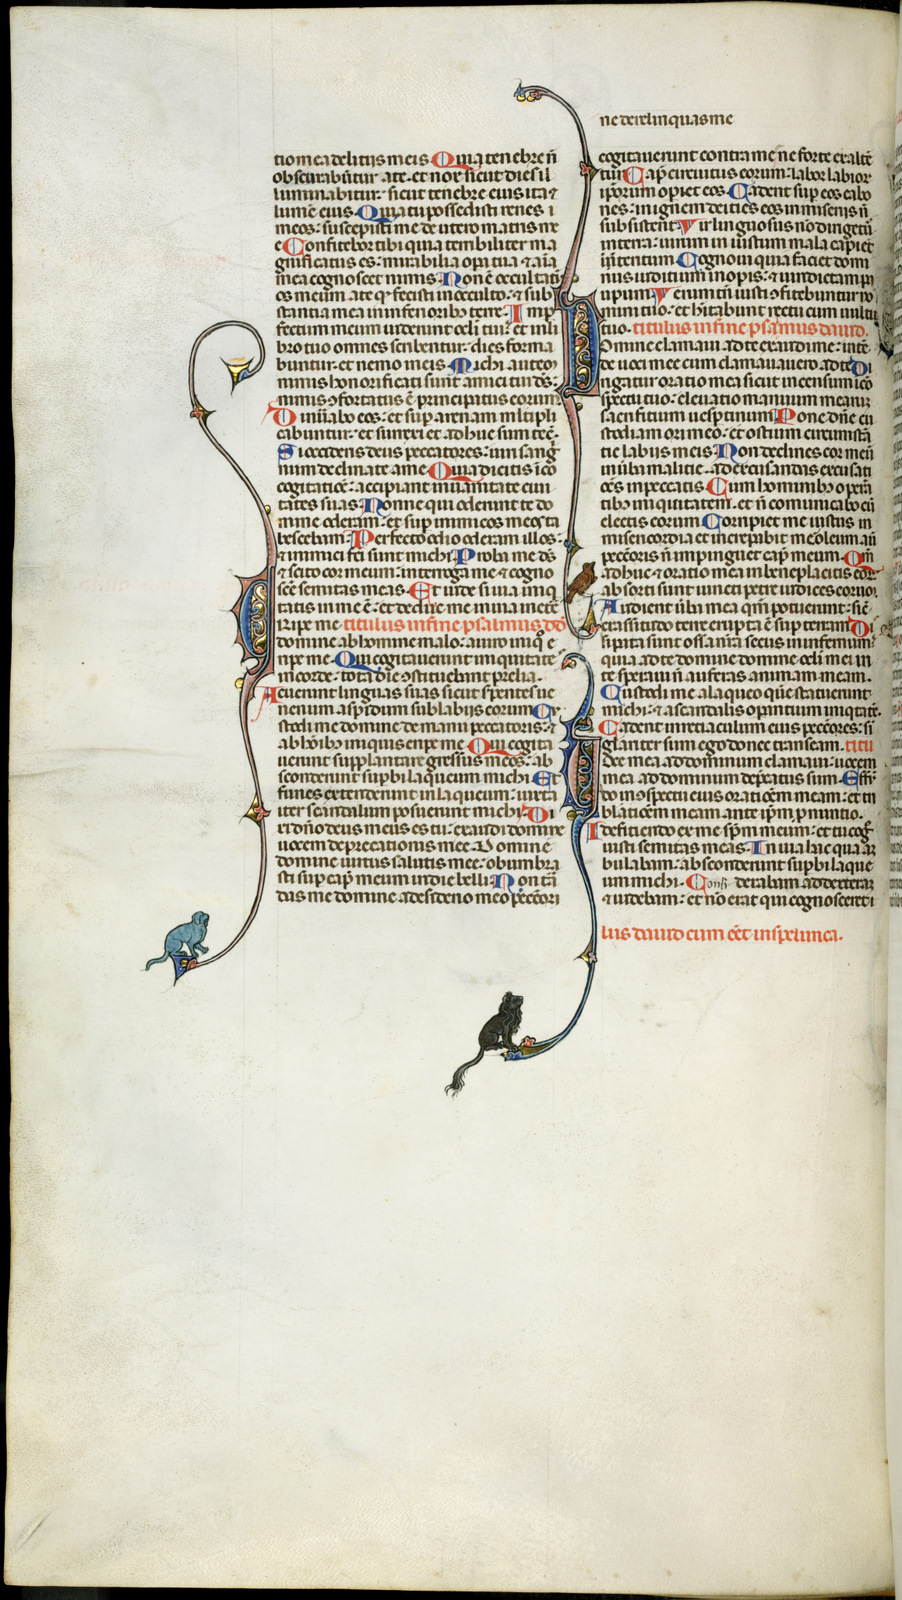 tio mea delitiis meis Quia tenebre ñ
obscurabũtur a te· et nox sicut dies il
luminabitur· sicut tenebre eius ita &
lumẽ eius Quia tu possedisti renes
meos· suscepisti me de utero matris me
e Confitebor tibi quia terribiliter ma
gnificatus es· mirabilia opa tua & aĩa
mea cognoscet nimis Non ẽ occultatũ
os meum a te qd fecisti in occulto· & sub
stantia mea in inferioribus terre Imp
fectum meum uiderunt oculi tui· et in li
bro tuo omnes scribentur· dies forma
buntur· et nemo in eis Michi autem
nimis honorificati sunt amici tui ds·
nimis ɔfortatus ẽ principatus eorum
Dinũabo eos· et sup arenam mltipli
cabuntur· et surrexi et adhuc sum tecũ·
Si occideris deus peccatores· uiri sangi
num declinate a me Quia dicitis in co
gitatiõe· accipiant in uanitate ciui
tates suas Nonne qui oderunt te do
mine oderam· et sup inimicos meos ta
bescebam Perfecto odio oderam illos·
& inimici fcĩ sunt michi Proba me ds
& scito cor meum· interroga me & cogno
sce semitas meas Et uide si uia iniq
tatis in me ẽ· et deduc me in uia eterna
Eripe me titulus in fine psalmus dd
domine ab homine malo· a uiro iniqo e
ripe me Qui cogitauerunt iniquitates
in corde· tota die ɔstituebant prelia·
Acuerunt linguas suas sicut spentes ue
nenum aspidum sub labiis eorum Cu
stodi me domine de manu peccatoris· &
ab hõib; iniquis eripe me Qui cogita
uerunt supplantare gressus meos· ab
sconderunt supbi laqueum michi Et
funes extenderunt in laqueum· iuxta
iter scandalum posuerunt michi Di
xi dño deus meus es tu· exaudi domine
uocem deprecationis mee Domine
domine uirtus salutis mee· obumbra
sti sup cap meum in die belli Non tra
das me domine a desiderio meo peccatori
ne derelinquas me
cogitauerunt contra me ne forte exaltẽ
tur Cap circuitus eorum· labor labior
ip̃orum opiet eos Cadent sup eos carbo
nes· in ignem deicies eos in miseriis ñ
subsistent Vir linguosus nõ dirigetur
in terra· uirum iniustum mala capient
in interitum Cognoui quia faciet domi
nus iudicium inopis· & uindictam pau
pum Verum tñ iusti ɔfitebuntur no
mini tuo· et hitabunt recti cum uultu
tuo· titulus in fine psalmus dauid·
Domine clamaui ad te exaudi me· intẽ
de uoci mee cum clamauero ad te Di
rigatur oratio mea sicut incensum in cõ
spectu tuo· eleuatio manuum mearum
sacrificium uespertinum Pone dñe cu
stodiam ori meo· et ostium circumstã
tie labiis meis Non declines cor meũ
in ũba malitie· ad excusandas excusati
ões in peccatis Cum hominib; opera
tib; iniquitatem· et ñ comunicabo cũ
electis eorum Corripiet me iustus in
misericordia et increpabit me· oleum aũ
peccõris ñ impinguet cap meum Qm̃
adhuc & oratio mea in beneplacitis eor
absorti sunt iuncti petre iudices eorum·
Audient ũba mea qm̃ potuerunt· sic
crassitudo terre erupta ẽ sup terram Di
sipata sunt ossa nr̃a secus infernum·
quia ad te domine domine oculi mei in
te speraui ñ auferas animam meam·
Custodi me a laqueo que statuerunt
michi· & a scandalis opantium iniqtatẽ·
Cadent in retiaculum eius peccõres· si
glariter sum ego donec transeam· titu
Voce mea ad dominum clamaui· uoce
mea ad dominum depcatus sum· Effũ
do in ɔspectu eius oratiõem meam· et tri
bulatiõem meam ante ip̃m pnuntio·
In deficiendo ex me sp̃m meum· et tu cog
uisti semitas meas· In uia hac qua am
bulabam· absconderunt supbi laque
um michi· Considerabam ad dexteram
& uidebam· et nõ erat qui cognosceret
lus dauid cum ẽet in spelunca·